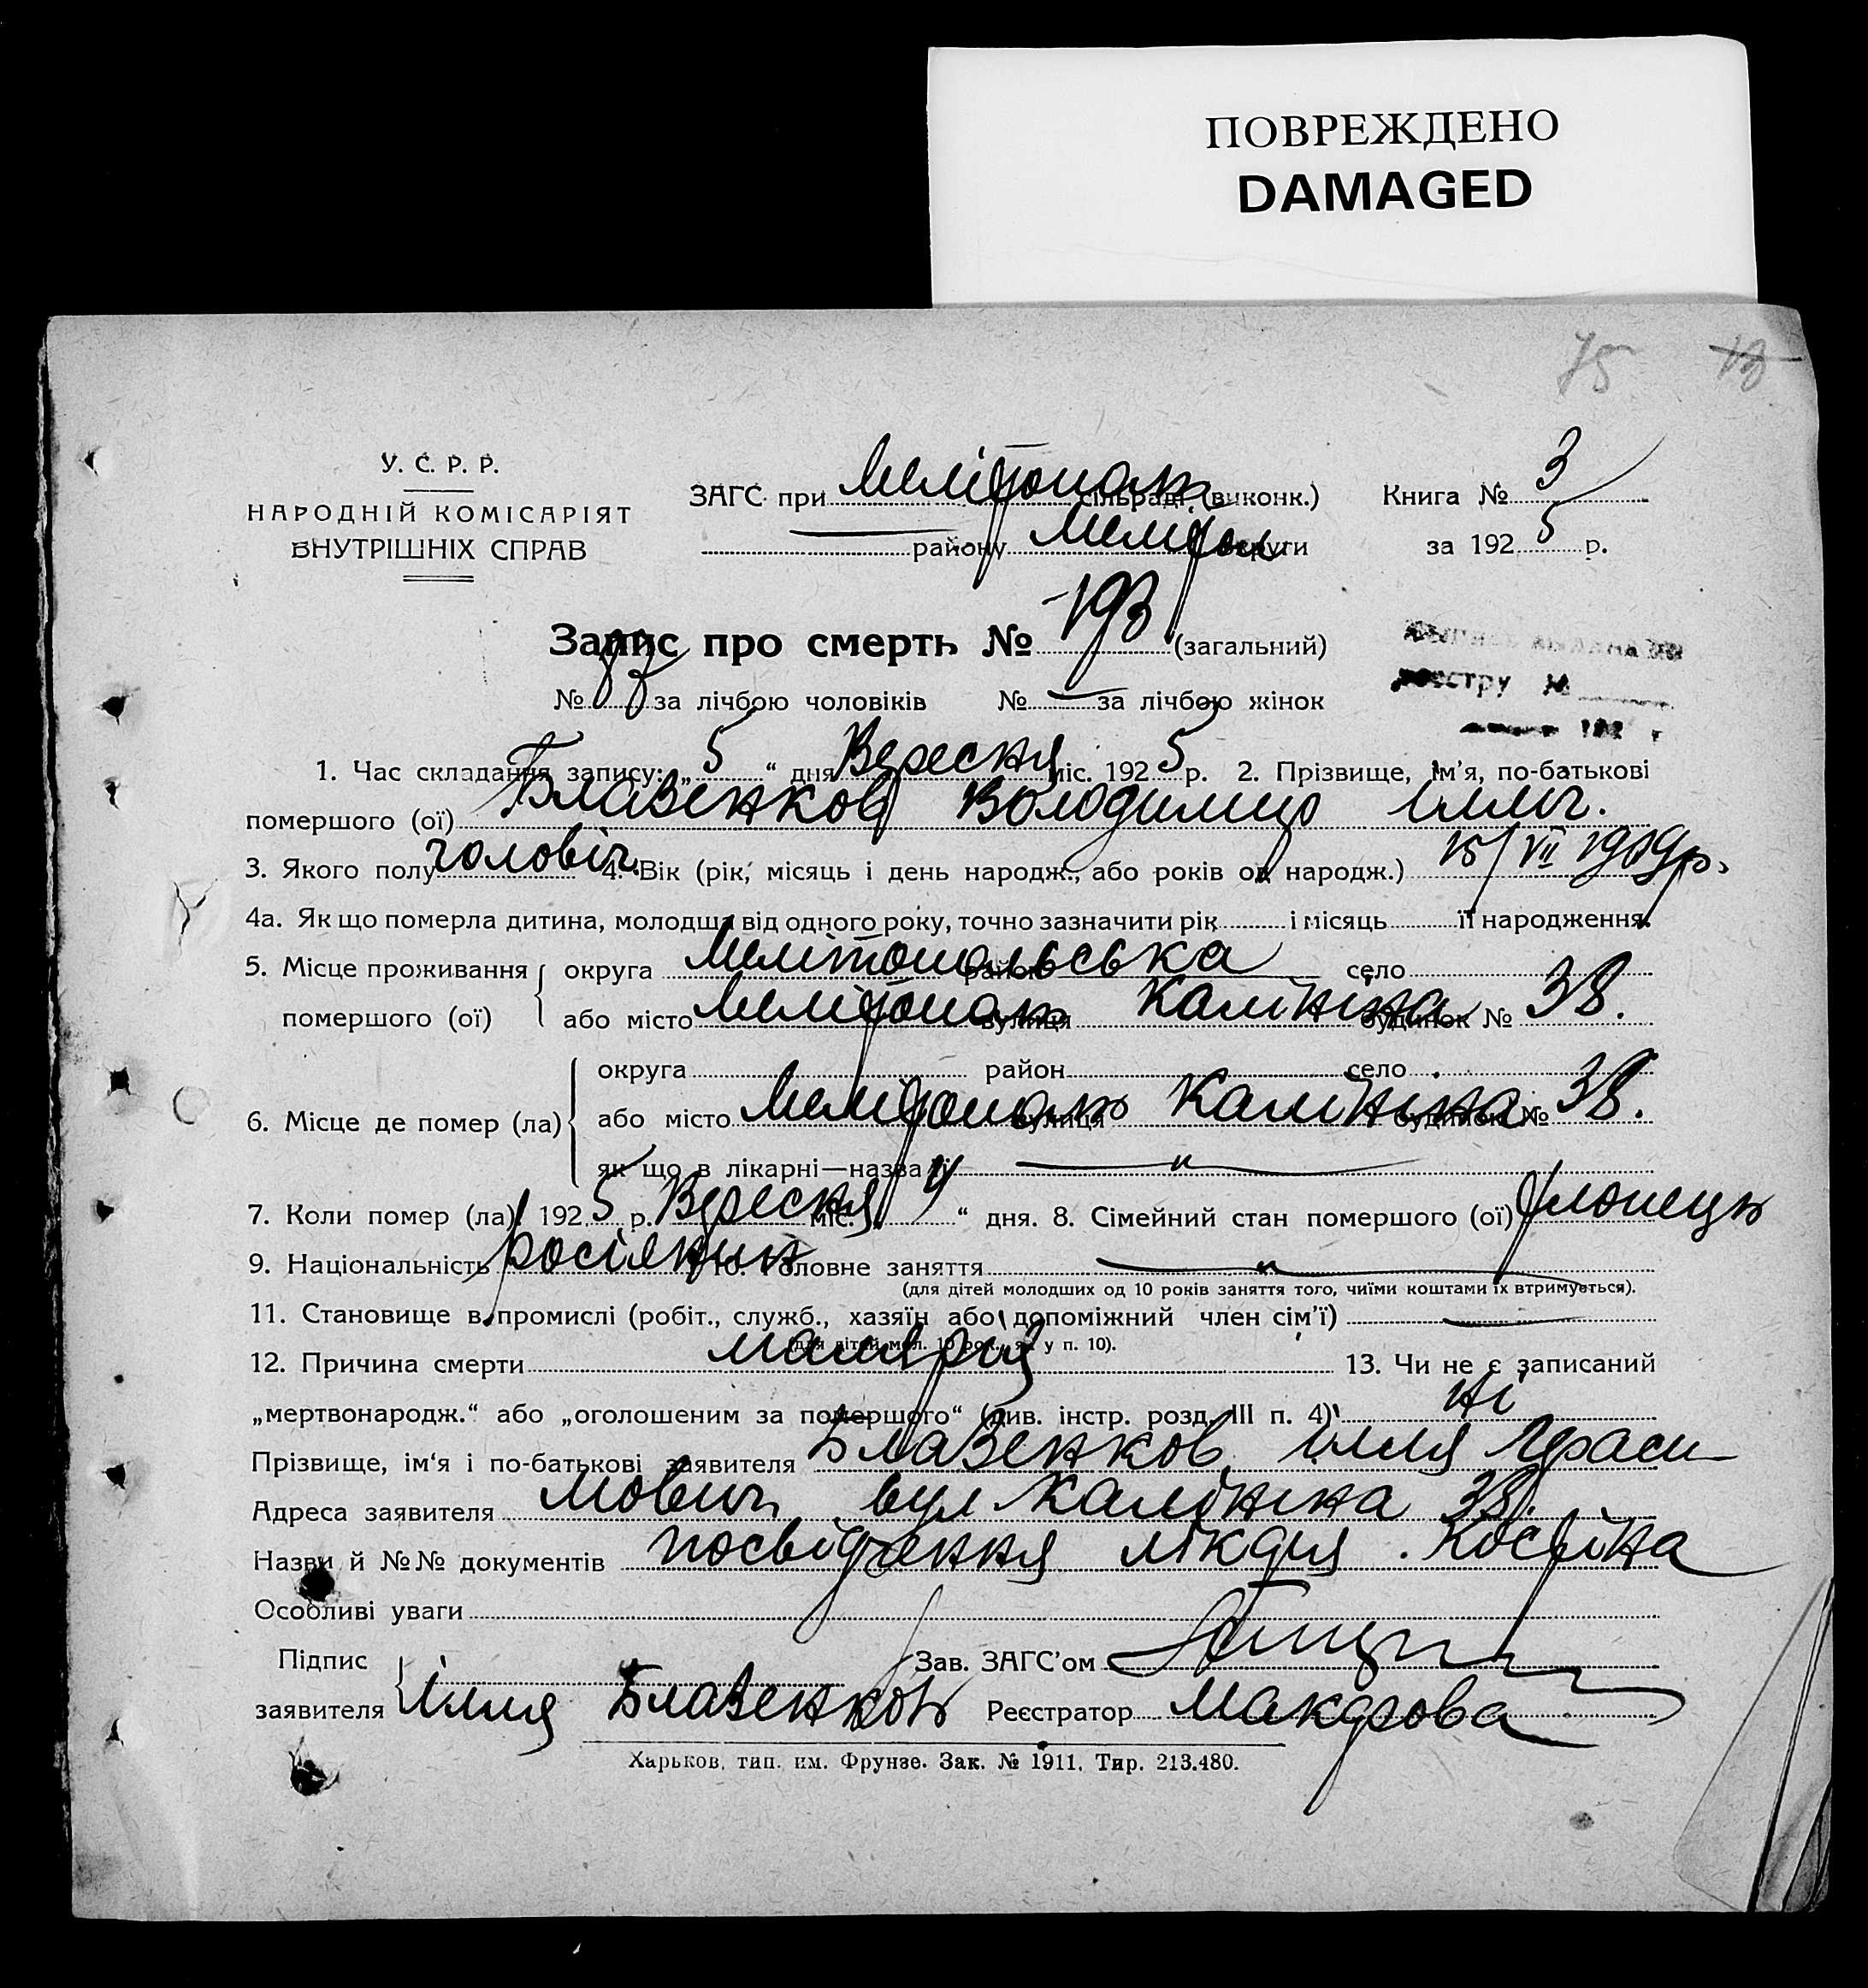 ПОВРЕЖДЕНО
DAMAGED
75 18
У. С. Р. Р.
НАРОДНІЙ КОМІСАРІЯТ
ВНУТРІШНІХ СПРАВ
ЗАГС при Мелітополь сільраді (виконк.)
району Меліton округи
Книга № 3
за 1925 р.
Запис про смерть № 193 (загальний)
№ за лічбою чоловіків № — за лічбою жінок
реєстру №
192 г
1. Час складання запису: „5“ дня Вересня міс. 1925 р. 2. Прізвище, ім'я, по-батькові
помершого (ої) Блавенков Володимир Ілліч.
3. Якого полу чоловіч. 4. Вік (рік, місяць і день народж., або років од народж.) 15/VII 1909р.
4а. Як що померла дитина, молодша від одного року, точно зазначити рік і місяць її народження.
5. Місце проживання помершого (ої) округа Мелітопольська район село
або місто Мелітополь вулиця Калініна будинок № 38.
6. Місце де помер (ла) округа район село
або місто Мелітополь вулиця Калініна будинок № 38.
як що в лікарні—назва її — " —
7. Коли помер (ла) 1925 р. Вересня міс. „4“ дня. 8. Сімейний стан помершого (ої) хлопець
9. Національність росіянин 10. Головне заняття — " —
(для дітей молодших од 10 років заняття того, чиїми коштами їх втримується).
11. Становище в промислі (робіт., служб., хазяїн або допоміжний член сім'ї) —
(для дітей мол. 10 рок., як у п. 10).
12. Причина смерти малярія 13. Чи не є записаний
„мертвонародж.“ або „оголошеним за помершого“ (див. інстр. розд. III п. 4) ні
Прізвище, ім'я і по-батькові заявителя Блавенков Ілля Гераси-
Адреса заявителя мович вул Калініна 38.
Назви й №№ документів посвідчення лікаря
Особливі уваги
Підпис заявителя Ілля Блавенков
Зав. ЗАГС'ом
Реєстратор Макарова
Харьков, тип. им. Фрунзе. Зак. № 1911. Тир. 213.480.